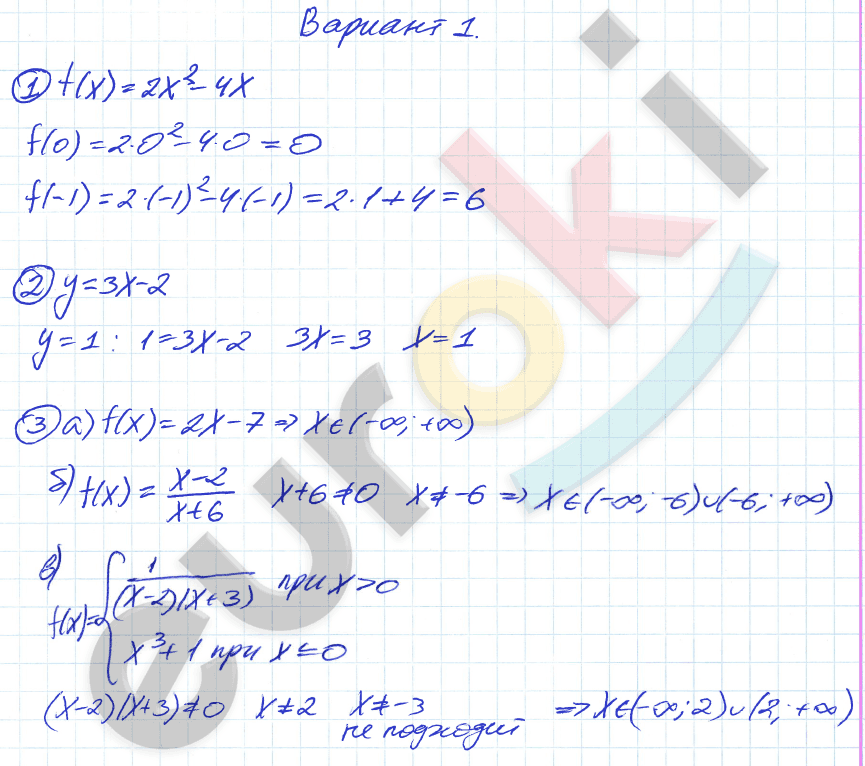 Вариант 1.
① f(x) = 2x² - 4x
f(0) = 2·0² - 4·0 = 0
f(-1) = 2·(-1)² - 4·(-1) = 2·1 + 4 = 6
② y = 3x - 2
y = 1 : 1 = 3x - 2 3x = 3 x = 1
③ а) f(x) = 2x - 7 => x ∈ (-∞; +∞)
б) f(x) = (x-2)/(x+6) x + 6 ≠ 0 x ≠ -6 => x ∈ (-∞; -6) ∪ (-6; +∞)
в) f(x) = { 1/((x-2)(x+3)) при x > 0
x³ + 1 при x ≤ 0
(x-2)(x+3) ≠ 0 x ≠ 2 x ≠ -3 => x ∈ (-∞; 2) ∪ (2; +∞)
не подходит
euroki